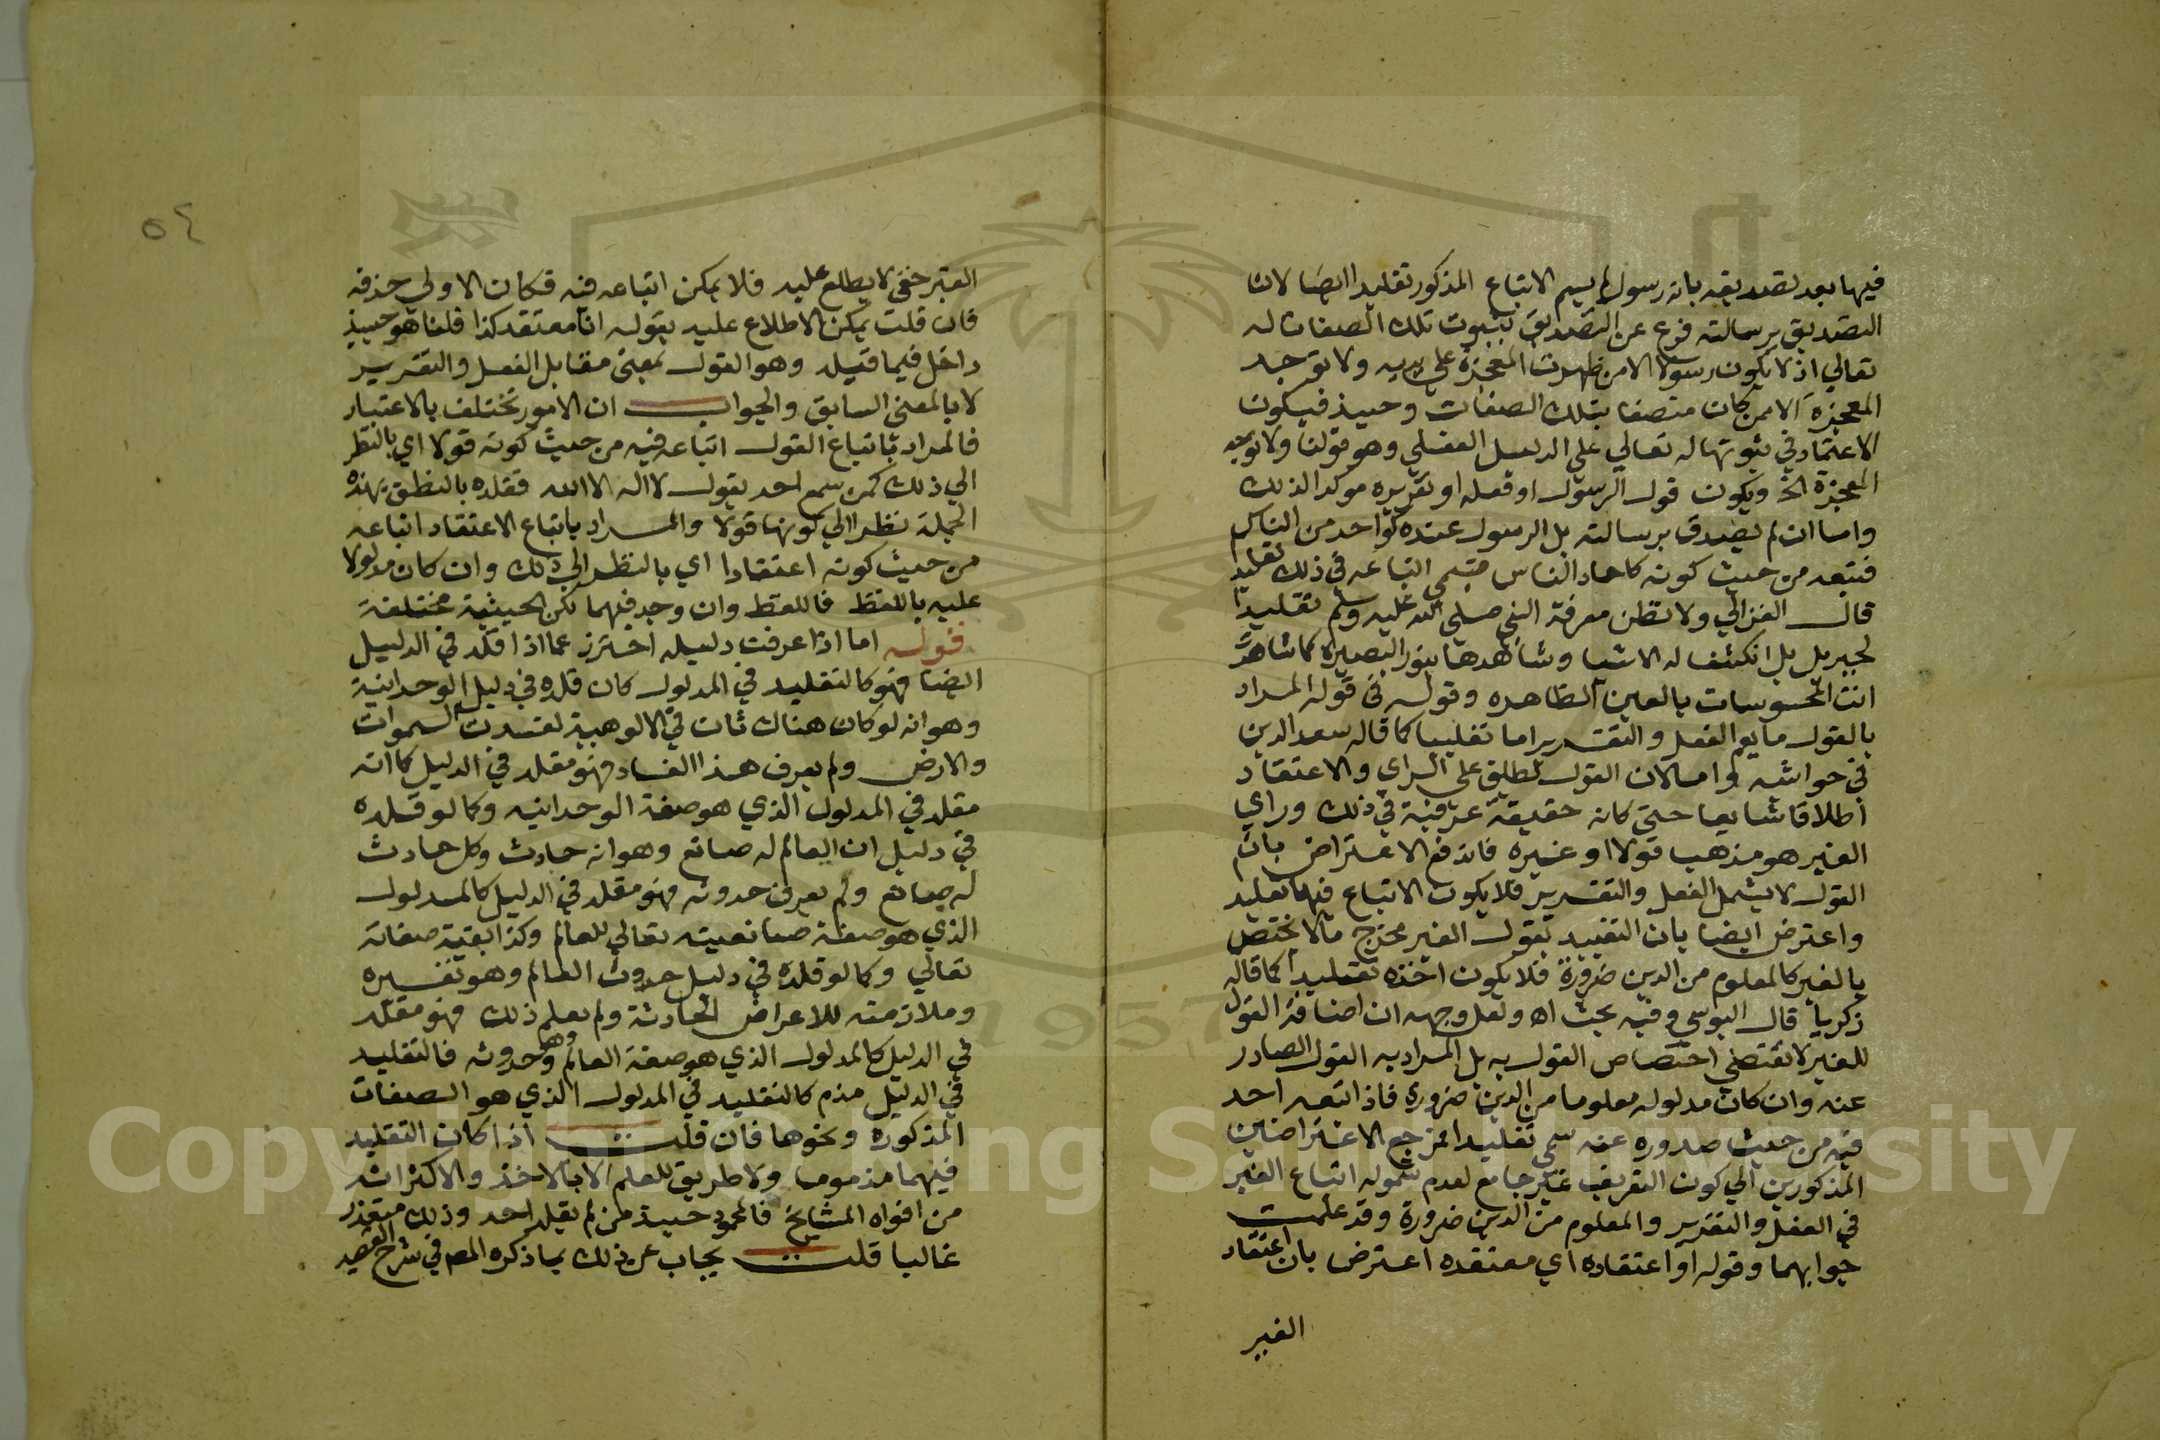 فيها بعد تصديقه بانه رسول لم يسم الاتباع المذكور تقليدا ايضا لان
التصديق برسالته فرع عن التصديق بثبوت تلك الصفات له
تعالي اذ لا يكون رسولا الا من ظهرت المعجزة علي يديه ولا توجد
المعجزة الا ممن كان متصفا بتلك الصفات وحينيذ فيكون
الاعتماد في ثبوتها له تعالي علي الدليل العقلي وهو قولنا ولا توجد
المعجزة الخ ويكون قول الرسول او فعله او تقريره موكدا لذلك
واما ان لم يصدق برسالته بل الرسول عنده كواحد من الناس
فتبعه من حيث كونه كاحاد الناس فيسمي اتباعه في ذلك تقليدا
قال الغزالي ولا تظن معرفة النبي صلي الله عليه وسلم تقليدا
لجبريل بل انكشف له الاشيا وشاهدها بنور البصيرة كما شاهدت
انت المحسوسات بالعين الظاهره وقوله في قوله المراد
بالقول ما يعم الفعل والتقرير اما تغليبا كما قاله سعد الدين
في حواشيه واما لان القول يطلق علي الراي والاعتقاد
اطلاقا شايعا حتي كانه حقيقة عرفية في ذلك وراي
الغير هو مذهبه قولا او غيره فاندفع الاعتراض بان
القول لا يشمل الفعل والتقرير فلا يكون الاتباع فيها تقليد
واعترض ايضا بان التقييد بقول الغير مخرج مالا يختص
بالغير كالمعلوم من الدين ضرورة فلا يكون اخذه تقليدا كما قاله
زكريا قال اليوسي وفيه بحث اه ولعل وجهه ان اضافة القول
للغير لا تقتضي اختصاص القول به بل المراد به القول الصادر
عنه وان كان مدلوله معلوما من الدين ضرورة فاذا اتبعه احد
فيه من حيث صدوره عنه سمي تقليدا فمرجع الاعتراضين
المذكورين الي كون التعريف غير جامع لعدم شموله اتباع الغير
في الفعل والتقرير والمعلوم من الدين ضرورة وقد علمت
جوابهما وقوله او اعتقاده اي معتقده اعترض بان اعتقاد
الغير
٥٤
الغير خفي لا يطلع عليه فلا يمكن اتباعه فيه فكان الاولي حذفه
فان قلت يمكن الاطلاع عليه بقوله انا معتقد كذا قلنا هو حينيذ
داخل فيما قبله وهو القول بمعني مقابل الفعل والتقرير
لا بالمعني السابق والجواب ان الامور تختلف بالاعتبار
فالمراد باتباع القول اتباعه فيه من حيث كونه قولا اي بالنظر
الي ذلك كمن سمع احد يقول لا اله الا الله فقلده بالنطق بهذه
الجملة نظرا الي كونها قولا والمراد باتباع الاعتقاد اتباعه
من حيث كونه اعتقادا اي بالنظر الي ذلك وان كان مدلولا
عليه باللفظ فاللفظ وان وجد فيهما لكن الحيثية مختلفة
قوله اما اذا عرفت دليله احترز عما اذا قلد في الدليل
ايضا فهو كالتقليد في المدلول كان قلده في دليل الوحدانية
وهو انه لو كان هناك ثان في الالوهية لفسدت السموات
والارض ولم يعرف هذا الفساد فهو مقلد في الدليل كما انه
مقلد في المدلول الذي هو صفة الوحدانيه وكما لو قلده
في دليل ان العالم له صانع وهو انه حادث وكل حادث
له صانع ولم يعرف حدوثه فهو مقلد في الدليل كالمدلول
الذي هو صفة صانعيته تعالي للعالم وكذا بقية صفاته
تعالي وكما لو قلده في دليل حدوث العالم وهو تغيره
وملازمته للاعراض الحادثة ولم يعلم ذلك فهو مقلد
في الدليل كالمدلول الذي هو صفة العالم وهو حدوثه فالتقليد
في الدليل مذم كالتقليد في المدلول الذي هو الصفات
المذكورة ونحوها فان قلت اذا كان التقليد
فيهما مذموما ولا طريق للعلم الا بالاخذ والاكثراث
من افواه المشايخ فالمحمود حينيذ من لم يقلد احد وذلك متعذر
غالبا قلت يجاب عن ذلك بما ذكره المص في شرح القصيد